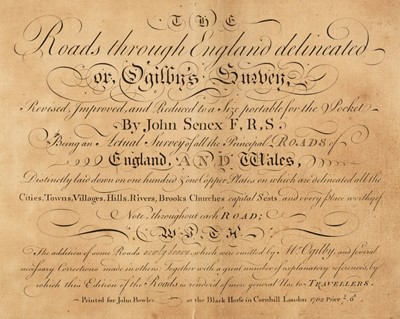 THE
Roads through England delineated
or, Ogilby's Survey,
Revised, Improved, and Reduced to a Size portable for the Pocket
By John Senex F.R.S
Being an Actual Survey of all the Principal ROADS of
England, AND Wales,
Distinctly laid down on one hundred & one Copper Plates on which are delineated all the
Cities, Towns, Villages, Hills, Rivers, Brooks Churches capital Seats and every place worthy of
Note, throughout each ROAD;
WITH
The addition of some Roads newly drawn, which were omitted by Mr. Ogilby, and several
necessary Corrections made in others; Together with a great number of explanatory references, by
which this Edition of the Roads is rendered of more general Use to TRAVELLERS.
Printed for John Bowles at the Black Horse in Cornhill London 1762 Price